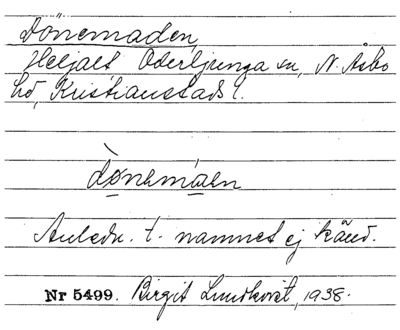 Dönemaden,
Heljalt Oderljunga sn, N. Åsbo
hd, Kristianstads l.
dönemaen
Anledn. t. namnet ej känd.
Nr 5499. Birgit Lundkvist, 1938.